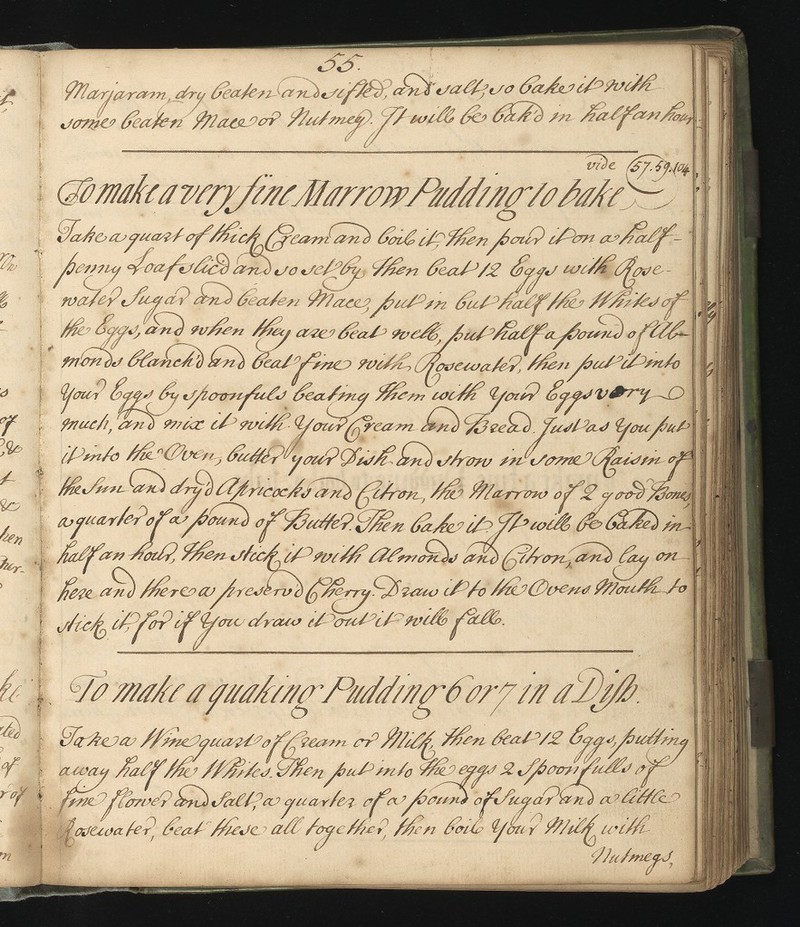 55.
Marjaram, dry beaten and sifted, and salt, so bake it with
some beaten Mace or Nutmeg. It will be bak'd in half an hour.
vide 57.59.104
To make a very fine Marrow Pudding to bake
Take a quart of thick Cream and boil it, then pour it on a half-
penny Loaf slic'd and so set by, then beat 12 Eggs with Rose-
water Sugar and beaten Mace, put in but half the Whites of
the Eggs, and when they are beat well, put half a pound of Al-
monds blanch'd and beat fine with Rosewater, then put it into
Your Eggs by spoonfuls beating them with Your Eggs very
much, and mix it with Your Cream and Bread. Just as You put
it into the Oven, butter your Dish and strow in some Raisin of
the Sun and dry'd Apricocks and Citron, the Marrow of 2 good Bones,
a quarter of a pound of Butter. Then bake it It will be baked in
half an hour, then stick it with Almonds and Citron, and lay on
here and there a preserv'd Cherry. Draw it to the Ovens Mouth to
stick it, for if You draw it out it will fall.
To make a quaking Pudding 6 or 7 in a Dish.
Take a Wine quart of Cream or Milk, then beat 12 Eggs, putting
away half the Whites. Then put into the eggs 2 Spoonfulls of
fine flower and Salt, a quarter of a pound of Sugar and a little
Rosewater, beat these all together, then boil Your Milk with
Nutmegs,